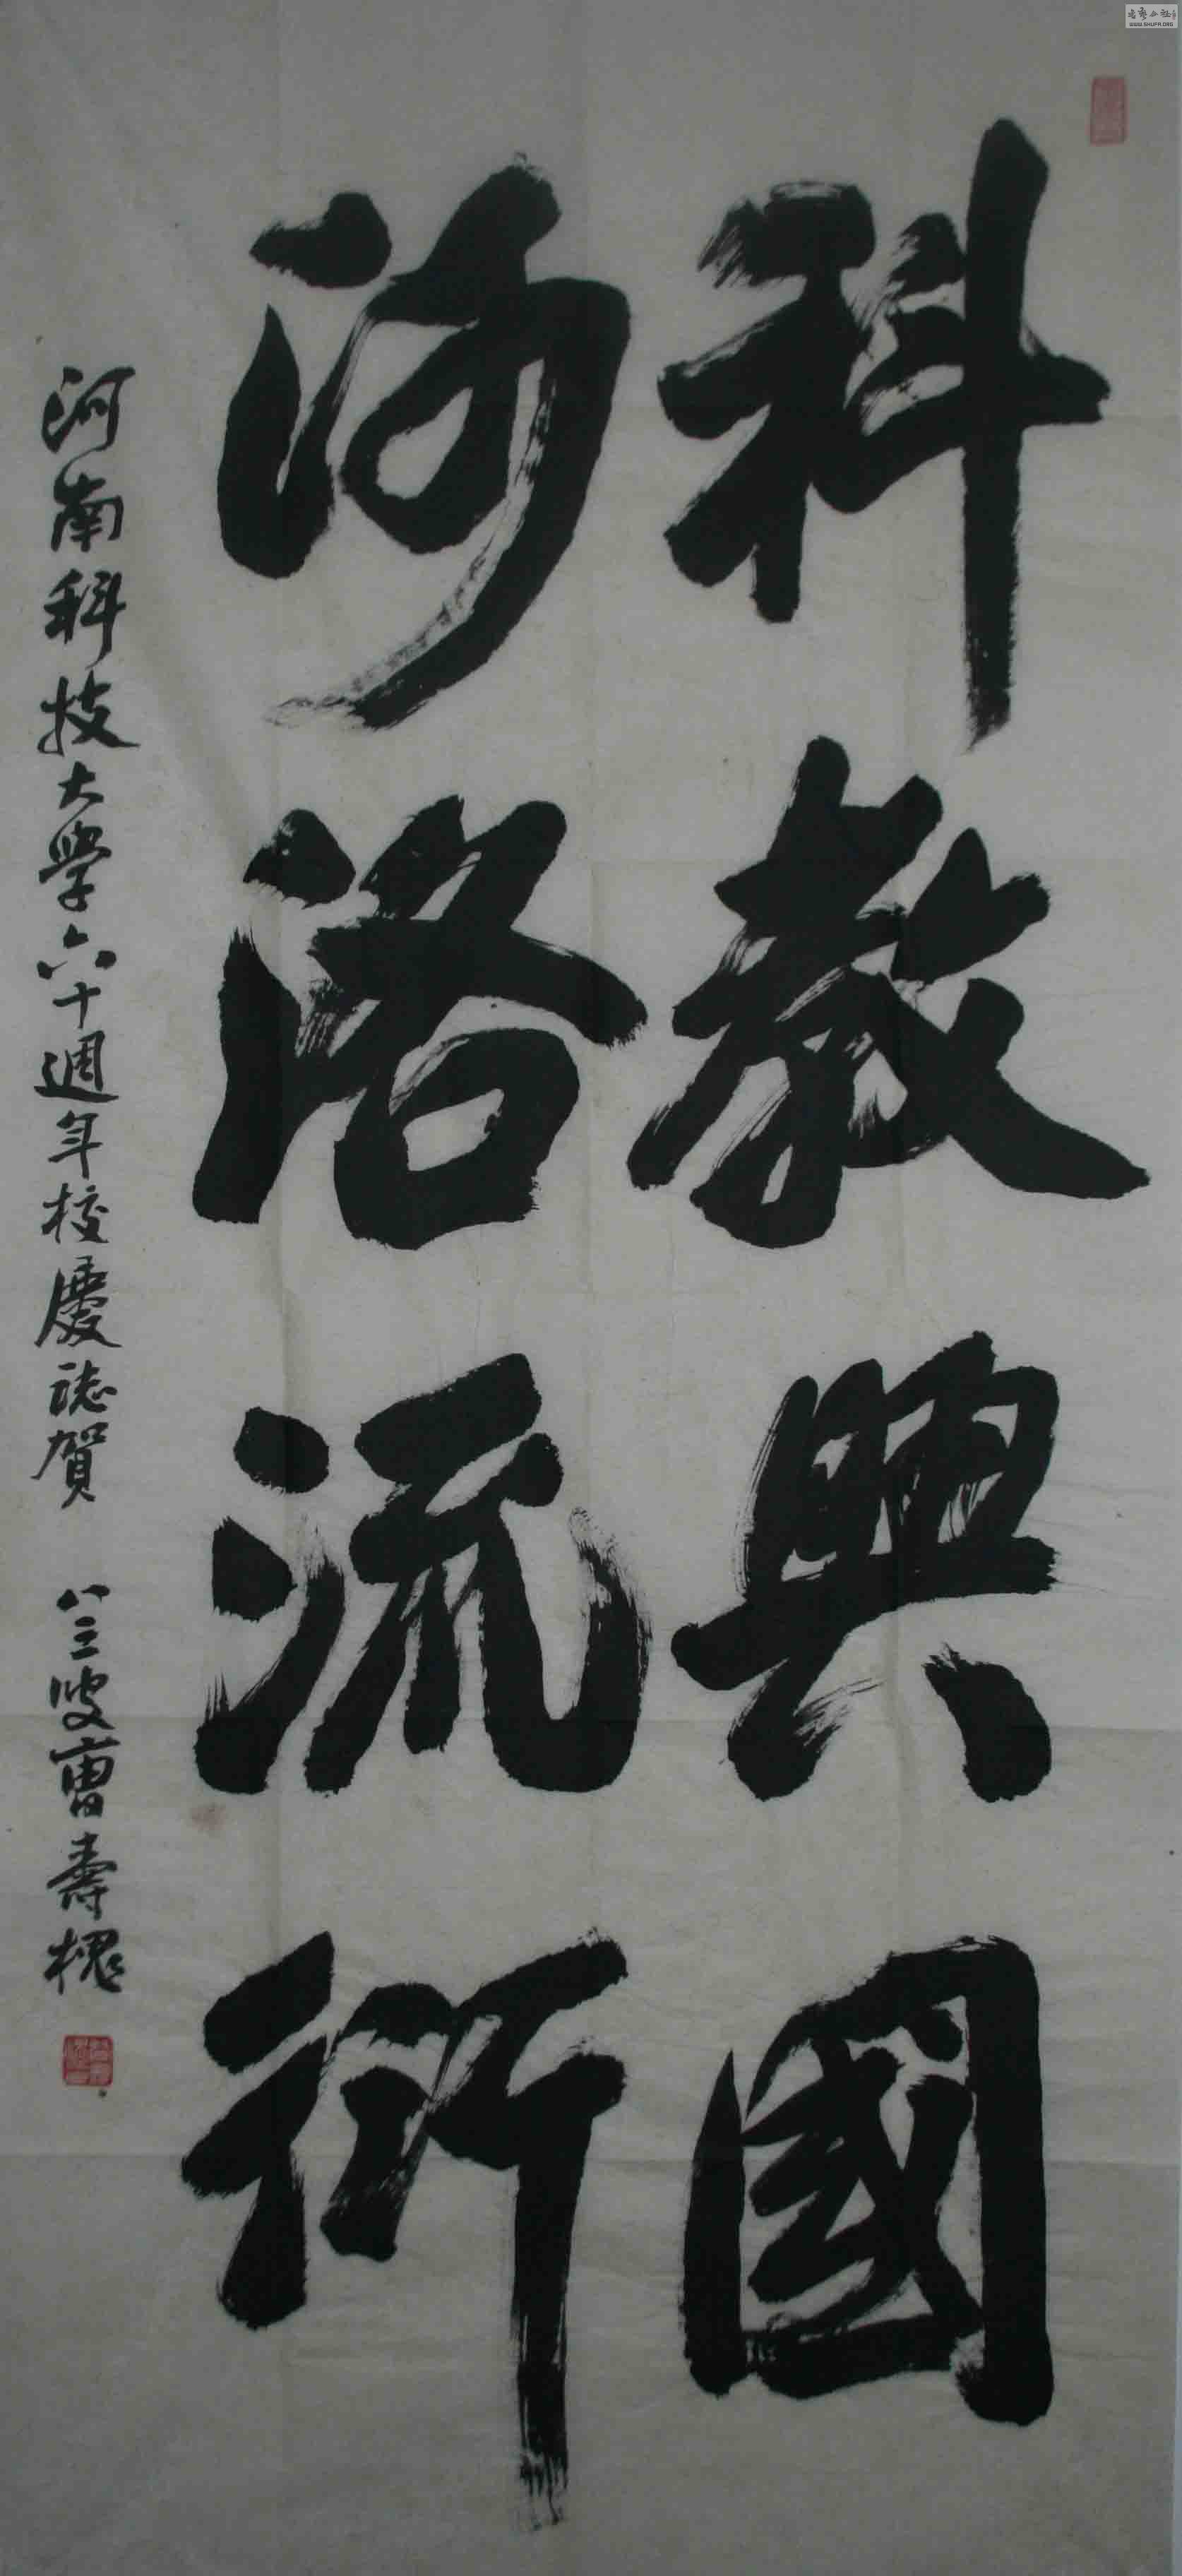 科教興國
河洛流衍
河南科技大學六十週年校慶誌賀 八三叟曹壽槐
WWW.SHUFA.ORG